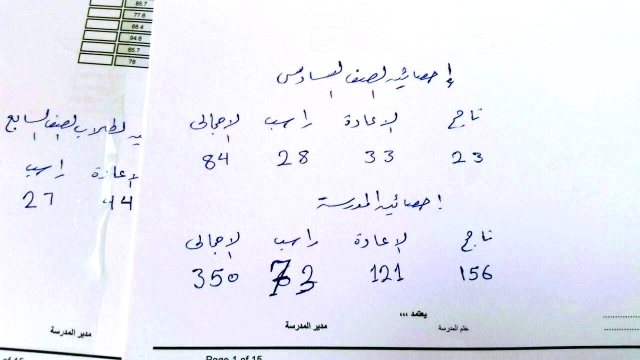 إحصائية الصف السادس
ناجح الإعادة راسب الإجمالي
23 33 28 84
إحصائية المدرسة
ناجح الإعادة راسب الإجمالي
156 121 73 350
يعتمد ،،،
ختم المدرسة مدير المدرسة
Page 1 of 15
85.7
77.6
68.4
94.6
65.7
78
ية لطلاب الصف السابع
الإعادة راسب
44 27
مدير المدرسة
of 15